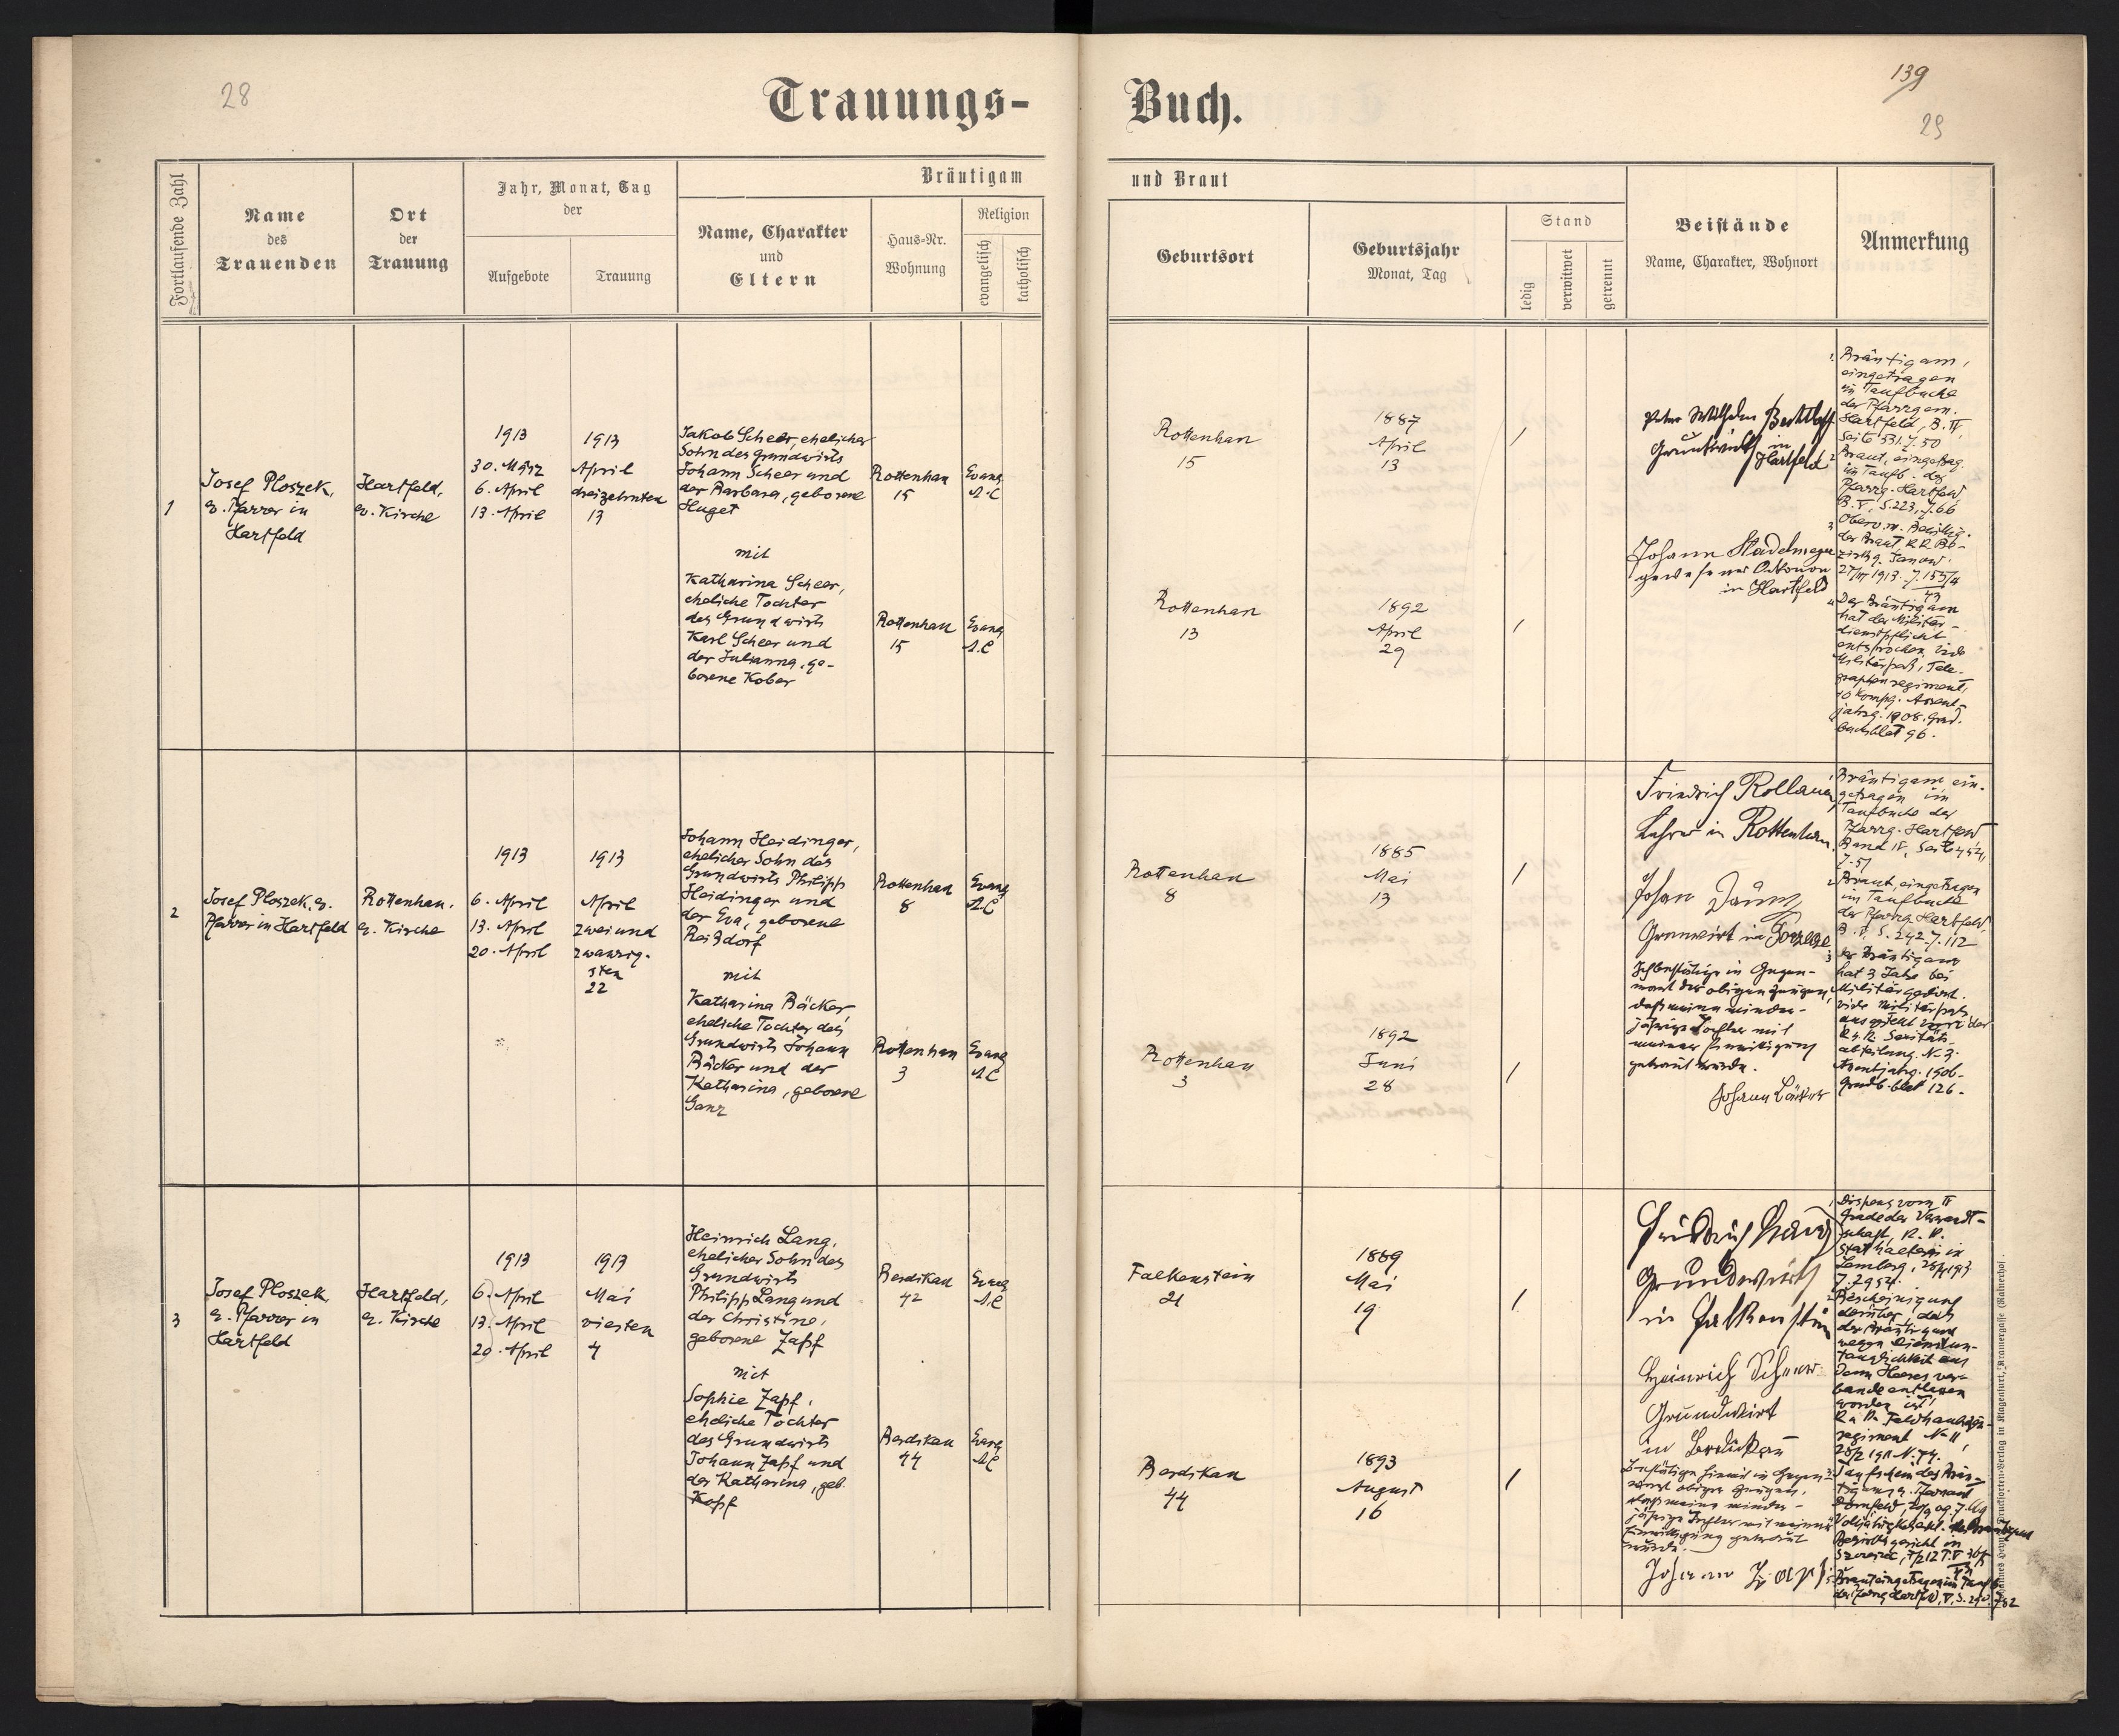 28
Trauungs-
Buch.
139
29
Fortlaufende Zahl
Name
des
Trauenden
Ort
der
Trauung
Jahr, Monat, Tag
der
Aufgebote
Trauung
Bräutigam
Name, Charakter
und
Eltern
Haus-Nr.
Wohnung
Religion
evangelisch
katholisch
und Braut
Geburtsort
Geburtsjahr
Monat, Tag
Stand
ledig
verwitwet
getrennt
Beistände
Name, Charakter, Wohnort
Anmerkung
1
Josef Ploszek,
ev. Pfarrer in
Hartfeld
Hartfeld,
ev. Kirche
1913
30. März
6. April
13. April
1913
April
dreizehnten
13
Jakob Scheer, ehelicher
Sohn des Grundwirts
Johann Scheer und
der Barbara, geborene
Huget
mit
Katharina Scheer,
eheliche Tochter
des Grundwirts
Karl Scheer und
der Julianna, ge-
borene Kober
Rottenhan
15
Evang
A.C
Rottenhan
15
Evang
A.C
Rottenhan
15
1887
April
13
Rottenhan
13
1892
April
29
Peter Wilhelm Bechtloff
Grundwirth in
Hartfeld
Johann Stadelmeyer
gewesener Oekonom
in Hartfeld
Bräutigam,
eingetragen
im Taufbuche
der Pfarrgem.
Hartfeld, B. IV,
Seite 331. Z. 50
Braut, eingetrag.
im Taufb. der
Pfarrg. Hartfeld
B. V, S. 223, Z. 66
der Braut K.K. Be-
zirksg. Janow.
27/III 1913. Z. 155/4
13
Der Bräutigam
hat der Militär-
dienstpflicht
entsprochen, vide
Militärpaß, Tele-
graphenregiment,
10 Kompg. Assent-
jahrg. 1908. Grd.
buchsblat 96.
2
Josef Ploszek, ev.
Pfarrer in Hartfeld
Rottenhan.
ev. Kirche
1913
6. April
13. April
20. April
1913
April
zweiund
zwanzig-
sten
22
Johann Heidinger,
ehelicher Sohn des
Grundwirts Philipp
Heidinger und
der Eva, geborene
Reißdorf
mit
Katharina Bäcker,
eheliche Tochter des
Grundwirts Johann
Bäcker und der
Katharina, geborene
Ganz
Rottenhan
8
Evang
A.C
Rottenhan
3
Evang
A.C
Rottenhan
8
1885
Mai
13
Rottenhan
3
1892
Juni
28
Friedrich Rollauer
Lehrer in Rottenhan.
Johan Däum
Grunwirt in
Ich bestätige in Gegen-
wart der obigen Zeugen,
daß meine minder-
jährige Tochter mit
meiner Einwilligung
getraut wurde.
Johann Bäcker
Bräutigam ein-
getragen im
Taufbuche der
Pfarrg. Hartfeld
Band IV, Seite 454,
Z. 51
Braut, eingetragen
im Taufbuche
der Pfarrg. Hartfeld,
B. V. S. 242. Z. 112
der Bräutigam
hat 3 Jahre bei
Militär gedient.
vide Militärpaß
ausgestellt von der
K.u.K. Sanitäts-
abteilung. N. 3.
Assentjahrg. 1906-
Grundb. blat 126.
3
Josef Ploszek,
ev. Pfarrer in
Hartfeld
Hartfeld,
ev. Kirche
1913
6. April
13. April
20. April
1913
Mai
vierten
4
Heinrich Lang,
ehelicher Sohn des
Grundwirts
Philipp Lang und
der Christine,
geborene Zapf
mit
Sophie Zapf,
eheliche Tochter
des Grundwirts
Johann Zapf und
der Katharina, geb.
Kopf
Berdikau
42
Evang
A.C
Berdikau
44
Evang
A.C
Falkenstein
21
1889
Mai
19
Berdikau
44
1893
August
16
Friedrich Lang
Grundwirth
in Falkenstein
Heinrich
Grundwirt
in Berdikau
Bestätige hiemit in Gegen-
wart obiger Zeugen,
daß meine minder-
jährige Tochter mit meiner
Einwilligung getraut
wurde.
Johann Zapf
Dispens vom IV
Grade der Verwandt-
schaft, K. K.
Statthalterei in
Lemberg,
Bescheinigung
darüber, daß
der Bräutigam
wegen Dienstun-
tauglichkeit aus
dem Heeres ver-
bande entlassen
worden ist,
K.u.K. Feldhaubitzen-
regiment No 11,
Taufschein des Bräu-
tigams, ev. Pfarramt
Dornfeld,
Bezirksgericht in
Braut eingetragen im Taufb.
der Pfarrg. Hartfeld, V. S. 290.